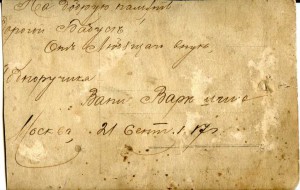 На добрую память
дорогой Бабусѣ
Отъ Любящаго внука,
Подпоручика
Вани
Москва, 21 Сент. 1917г.